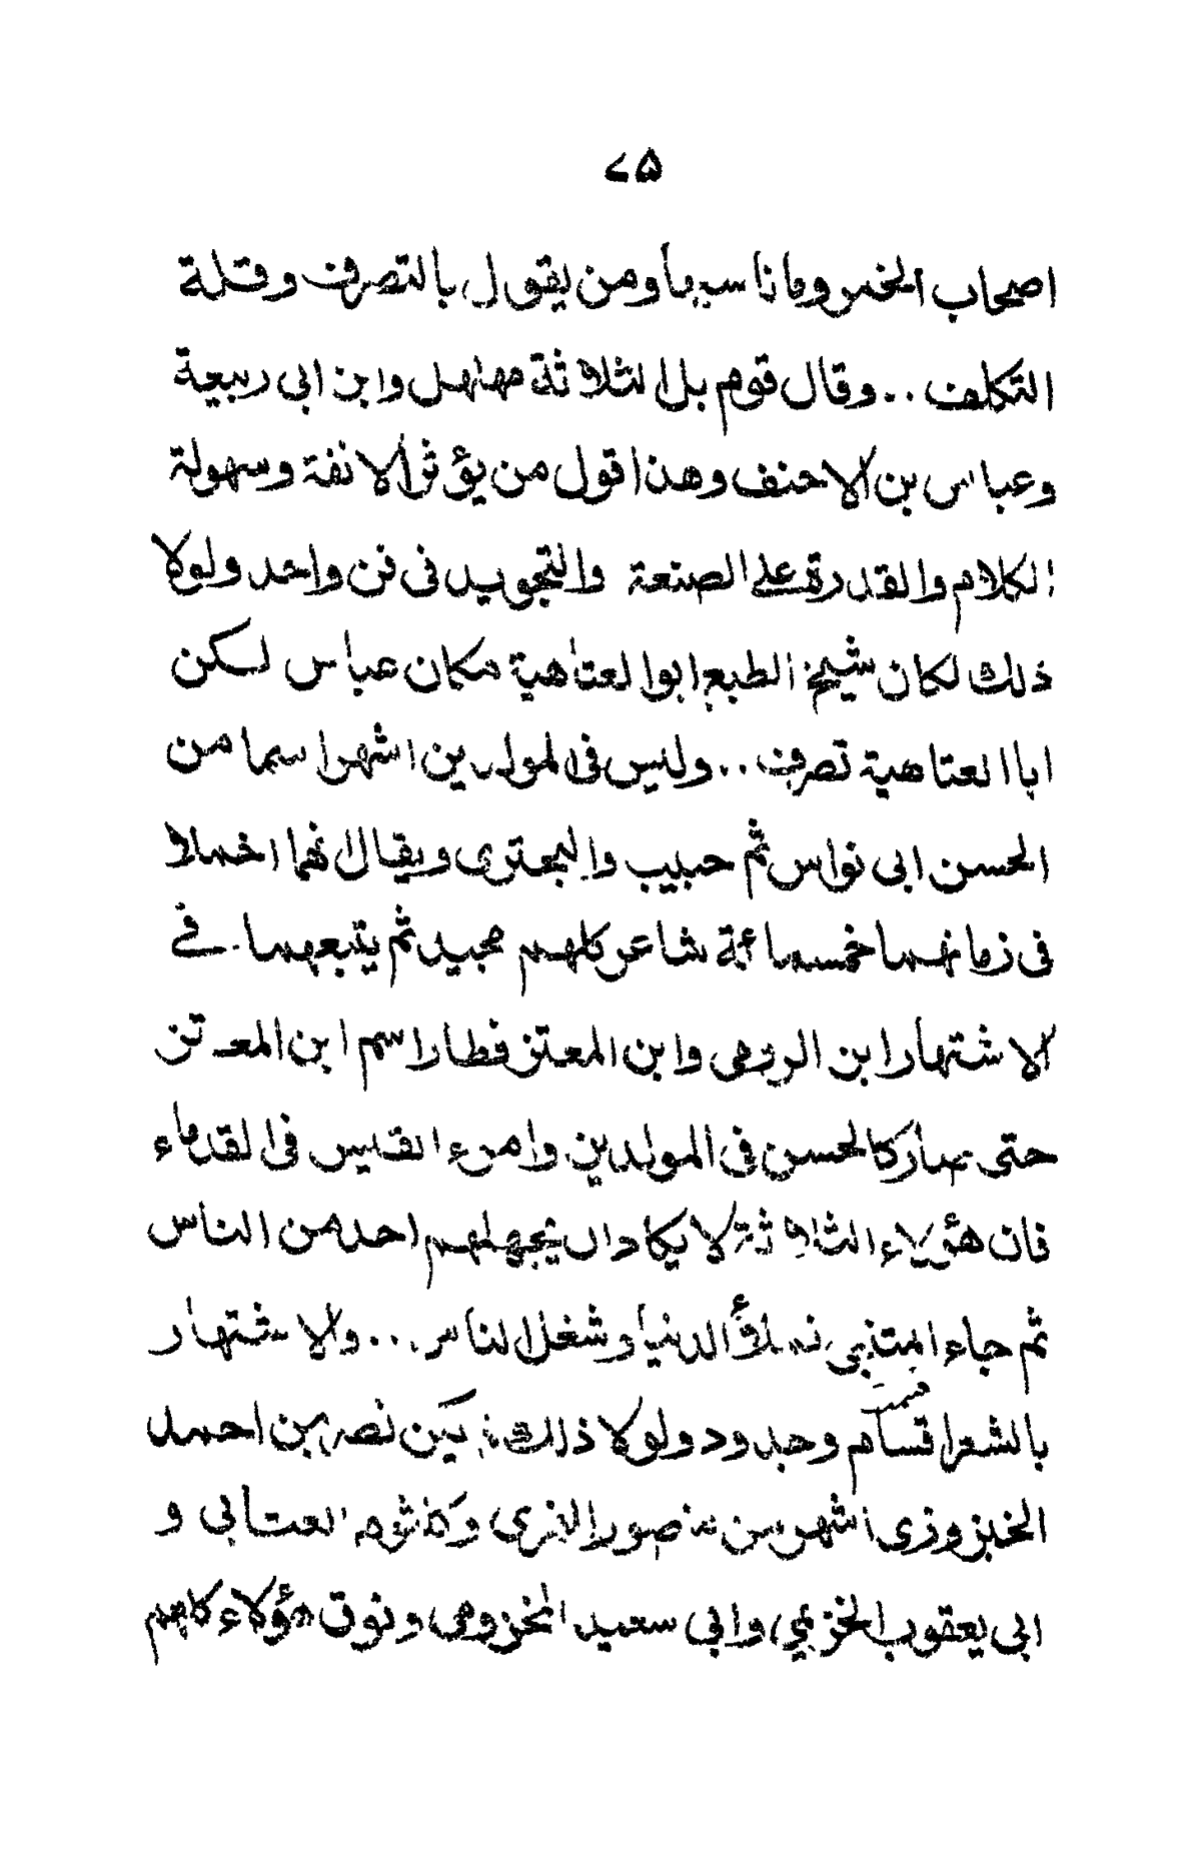 ٧٥
اصحاب الخمر وما ناسبها ومن يقول بالتصرف وقلة
التكلف .. وقال قوم بل الثلاثة مهلهل وابن ابى ربيعة
وعباس بن الاحنف وهذا قول من يؤثر الانفة وسهولة
الكلام والقدرة على الصنعة والتجويد فى فن واحد ولولا
ذلك لكان شيخ الطبع ابو العتاهية مكان عباس لكن
ابا العتاهية تصرف .. وليس فى المولدين اشهر اسما من
الحسن ابى نواس ثم حبيب والبحترى ويقال انهما اخملا
فى زمانهما خمسمائة شاعر كلهم مجيد ثم يتبعهما فى
الاشتهار ابن الرومى وابن المعتز فطار اسم ابن المعتز
حتى صار كالحسن فى المولدين وامرء القيس فى القدماء
فان هؤلاء الثلاثة لا يكاد ان يجهلهم احد من الناس
ثم جاء المتنبى فملأ الدنيا وشغل الناس ... والاشتهار
بالشعر اقسام وحدود ولولا ذلك لم يكن نصر بن احمد
الخبزوزى اشهر من منصور النمرى وكلثوم العتابى و
ابى يعقوب الخزيمي وابي سعيد المخزومى وفوق هؤلاء كلهم